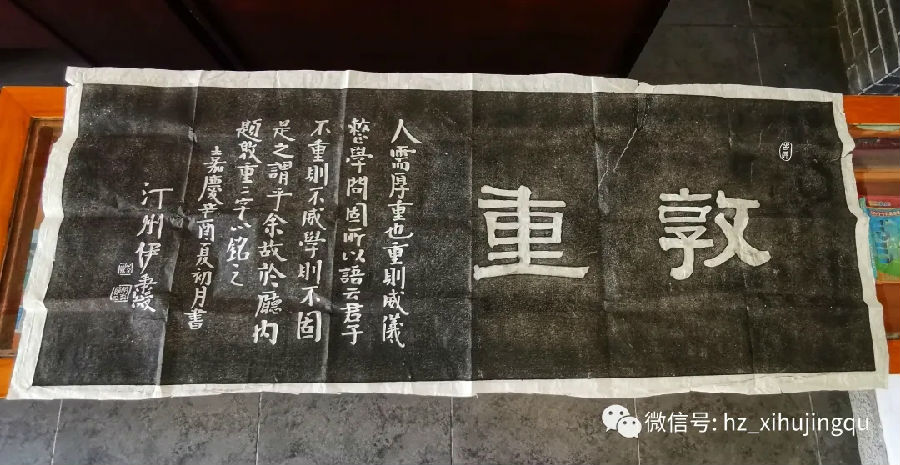 敦重
人需厚重也重則威儀
整學問固所以語云君子
不重則不威學則不固
是之謂乎余故於廳內
題敦重二字以銘之
嘉慶辛酉夏初月書
汀州伊秉綬
微信号: hz_xihujingqu